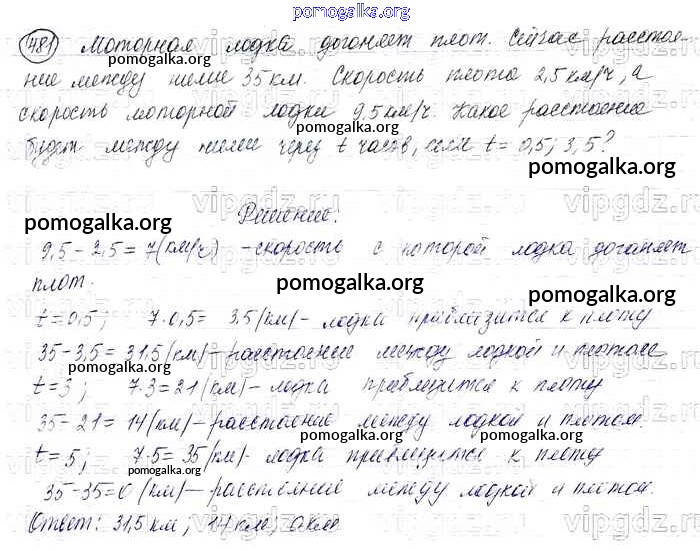 pomogalka.org
481 Моторная лодка догоняет плот. Сейчас расстоя-
ние между ними 35 км. Скорость плота 2,5 км/ч, а
скорость моторной лодки 9,5 км/ч. Какое расстояние
pomogalka.org
будет между ними через t часов, если t = 0,5; 3, 5?
Решение:
pomogalka.org
pomogalka.org
9,5 - 2,5 = 7 (км/ч) - скорость с которой лодка догоняет
плот.
pomogalka.org
t = 0,5; 7·0,5 = 3,5 (км) - лодка приблизится к плоту
35 - 3,5 = 31,5 (км) - расстояние между лодкой и плотом
pomogalka.org
t = 3; 7·3 = 21 (км) - лодка приблизится к плоту
35 - 21 = 14 (км) - расстояние между лодкой и плотом.
pomogalka.org
pomogalka.org
t = 5; 7·5 = 35 (км) - лодка приблизится к плоту
pomogalka.org
35 - 35 = 0 (км) - расстояние между лодкой и плотом.
Ответ: 31,5 км; 14 км; 0 км
pomogalka.org
vipgdz.ru